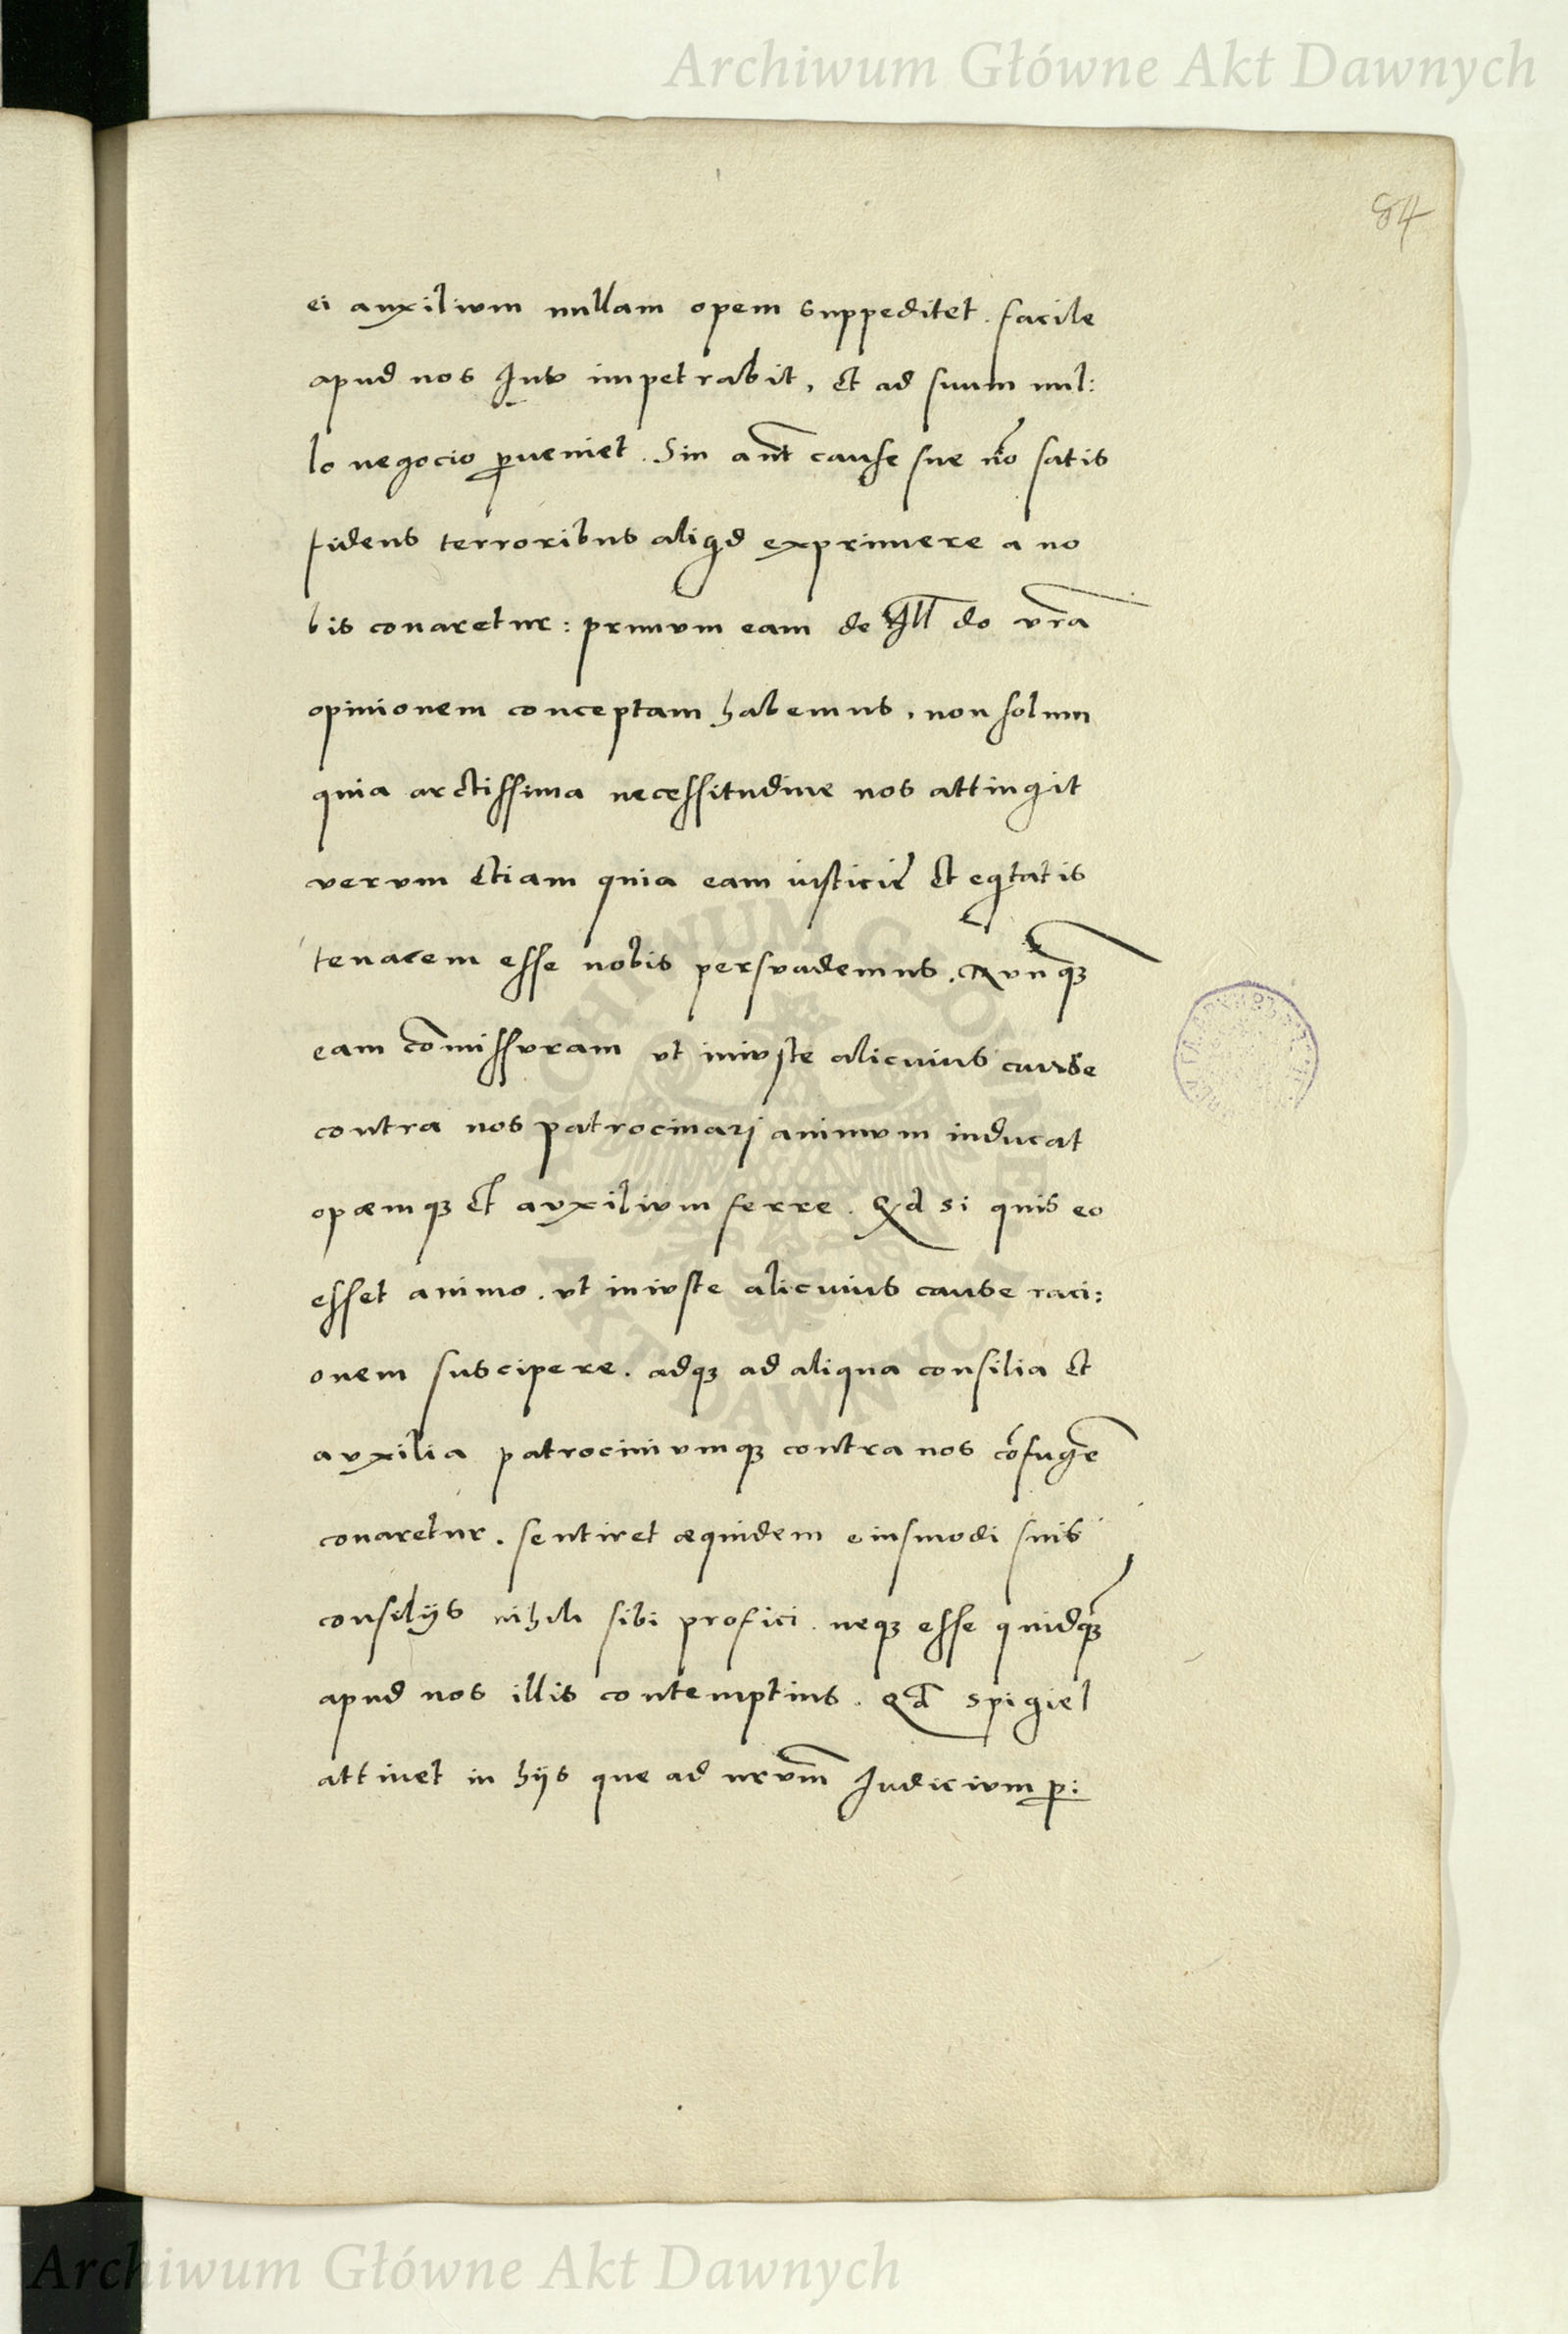 Archiwum Główne Akt Dawnych
84
ei auxilium nullam opem suppeditet. facile
apud nos impetrabit, et ad suum nul:
lo negocio ꝑueniet. Sin aut̄ cause sue nō satis
fidens terroribus aliqd exprimere a no
bis conaretur: primum eam de Ill do vr̄a
opinionem conceptam habemus, non solum
quia arctissima necessitudine nos attingit
verum etiam quia eam iusticie et eqtatis
tenacem esse nobis persvademus. Nunꝙ
eam cōmissuram vt iniuste alicuius cause
contra nos patrocinarj animum inducat
opæmqꝫ et auxilium ferre. Qd si quis eo
esset animo. vt iniuste alicuius cause raci:
onem suscipere. adqꝫ ad aliqua consilia et
auxilia patrociniumqꝫ contra nos cōfugē
conaretur. sentiret æquidem eiusmodi suis
consilijs nihil sibi profici. neqꝫ esse quidqꝫ̄
apud nos illis contemptius. Qd̄ spigiel
attinet in hijs que ad nrūm Iudicium ꝑ:
ARCHIWUM GŁÓWNE
AKT DAWNYCH
Archiwum Główne Akt Dawnych